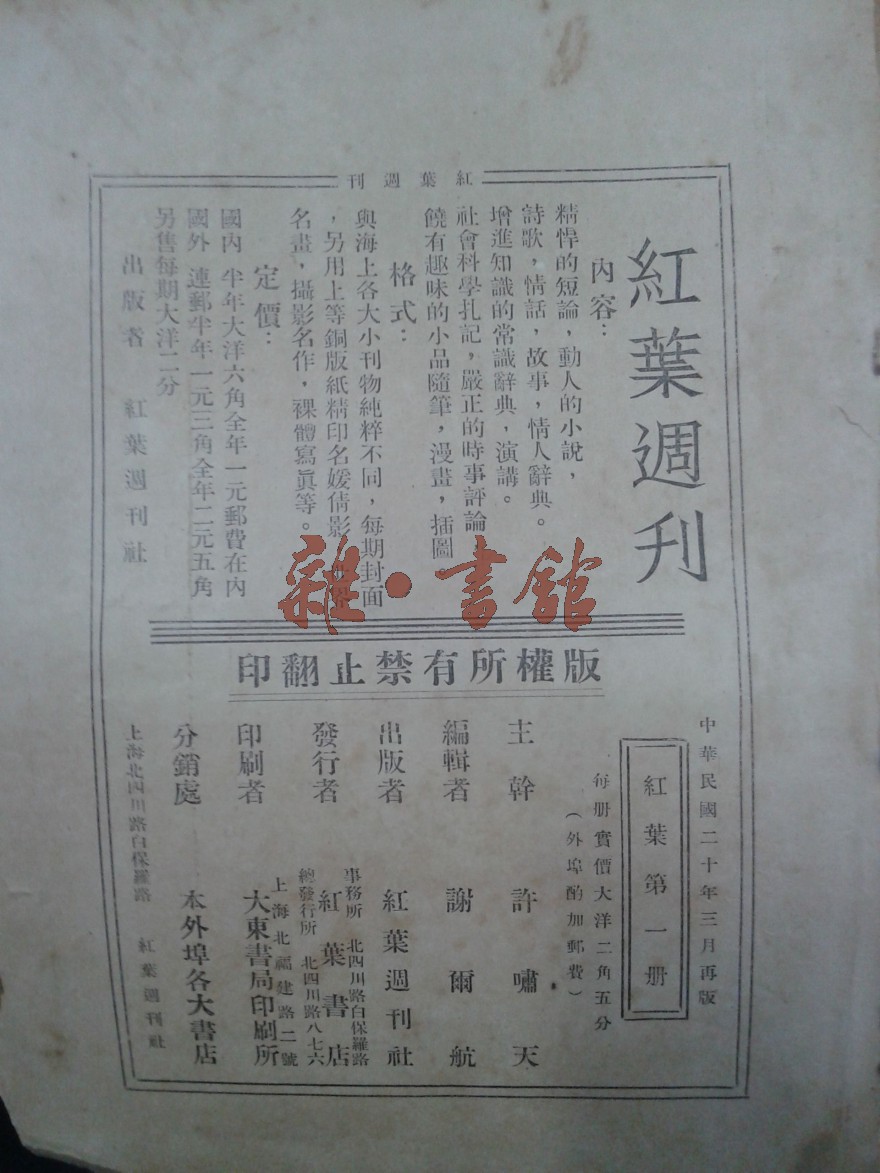 紅葉週刊
紅葉週刊
內容：
精悍的短論，動人的小說，
詩歌，情話，故事，情人辭典。
增進知識的常識辭典，演講。
社會科學扎記，嚴正的時事評論
饒有趣味的小品隨筆，漫畫，插圖。
格式：
與海上各大小刊物純粹不同，每期封面
，另用上等銅版紙精印名媛倩影
名畫，攝影名作，裸體寫眞等。
定價：
國內 半年大洋六角全年一元郵費在內
國外 連郵半年一元三角全年二元五角
另售每期大洋二分
出版者 紅葉週刊社
雜·書館
版權所有禁止翻印
中華民國二十年三月再版
紅葉第一册
每册實價大洋二角五分
（外埠酌加郵費）
主幹 許嘯天
編輯者 謝爾航
出版者 紅葉週刊社
事務所 北四川路白保羅路
發行者 紅葉書店
總發行所 北四川路八七六
上海北福建路二號
印刷者 大東書局印刷所
分銷處 本外埠各大書店
上海北四川路白保羅路 紅葉週刊社